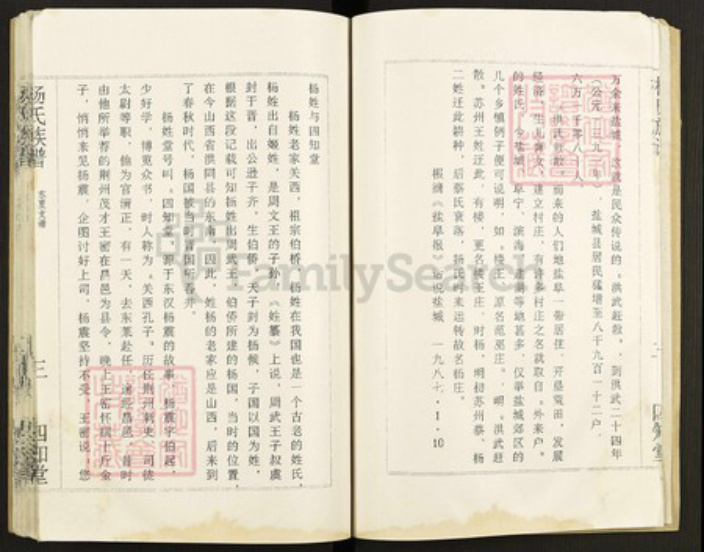 万余来盐城，这就是民众传说的“洪武赶散”。到洪武二十四年
（公元一三九一年），盐城县居民猛增至八千九百一十二户，
六万一千零八一人。
“洪武赶散”而来的人们地盐阜一带居住，开垦荒田，发展
经济，生儿育女，建立村庄，有许多村庄之名就取自“外来户”
的姓氏。今盐城、阜宁、滨海、建湖等地甚多，仅举盐城郊区的
几个乡镇例子便可说明，如“楼王”原名范恩庄。明“洪武赶
散”苏州王姓迁此，有楼，更名楼王庄，时杨，明初苏州蔡、杨
二姓迁此耕种，后蔡氏衰落，杨氏时来运转故名杨庄。
根据《盐阜报》话说盐城 一九八七·1·10
杨姓与四知堂
杨姓老家关西，祖宗伯桥。杨姓在我国也是一个古老的姓氏，
杨姓出自姬姓，是周文王的子孙《姓纂》上说，周武王子叔虞
封于晋，出公逊子齐，生伯侨，天子封为杨候，子国以国为姓，
根据这段记载可知杨姓出周武王，伯侨所建的杨国，当时的位置，
在今山西省洪同县的东南，因此，姓杨的老家应是山西，后来到
了春秋时代，杨国被当时晋国所吞并。
杨姓堂号叫“四知堂”源于东汉杨震的故事。杨震字伯起，
少好学，博览众书，时人称为“关西孔子”历任荆州刺史、司徒
太尉等职，他为官清正，有一天，去东莱赴任，途经昌邑，昔时
由他所举荐的荆州茂才王密在昌邑为县令，晚上王密怀揣十斤金
子，悄悄来见杨震，企图讨好上司，杨震坚持不受，王密说，您
杨氏族谱
三
四知堂
FamilySearch